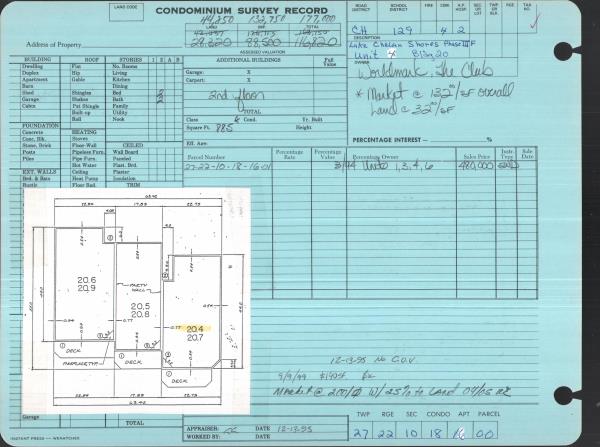 LAND CODE
CONDOMINIUM SURVEY RECORD
44,250 132,750 177,000
28,220 88,500 116,820
ASSESSED VALUATION
Address of Property
ROAD DISTRICT SCHOOL DISTRICT FIRE CEM. P.P. HOSP SEC OR LOT TWP OR BLK RGE TAX NO.
CH 129 4 2
DESCRIPTION
Lake Chelan Shores Phase II F
Unit 4 Bldg 20
OWNER
Worldmark, The Club
* Market @ 132⁰⁰/SF overall
Land @ 32⁰⁰/SF
BUILDING ROOF STORIES 1 2 A B
Dwelling Flat No. Rooms
Duplex Hip Living
Apartment Gable Kitchen
Barn Dining
Shed Shingles Bed 2
Garage Shakes Bath 2
Cabin Pat. Shingle Furn.
Built-up Utility
Roll Nook
FOUNDATION
Concrete HEATING
Conc. Blk. Stoves
Stone, Brick Floor Wall CEILED
Posts Pipeless Furn. Wall Board
Piles Pipe Furn. Paneled
Hot Water Plast. Brd.
EXT. WALLS Ceiling Plaster
Bd. & Bats Heat Pump Insulation
Rustic Floor Rad. TRIM
ADDITIONAL BUILDINGS Full Value
Garage: X
Carport: X
2nd floor
TOTAL
Class 6 Cond. Yr. Built
Square Ft. 885 Height
Eff. Age:
PERCENTAGE INTEREST — %
Parcel Number Percentage Rate Percentage Value Percentage Owner Sales Price Instr. Type Sale Date
27-22-10-18-16-01 3/94 Units 1, 3, 4, 6 480,000 SWD
63.42
22.84 17.83 22.75
20.6
20.9
PARTY WALL
20.5
20.8
20.4
20.7
DECK
DECK
DECK
FIREPLACE TYP.
22.84 17.83 22.75
63.42
12-13-95 No C.O.V.
9/9/99 $140SF
Market @ 200/ϕ W/ 25% to Land 04/05
Garage
TOTAL
APPRAISER: DATE 12-13-95
WORKED BY: DATE
TWP RGE SEC CONDO APT PARCEL
27 22 10 18 16 00
INSTANT PRESS — WENATCHEE